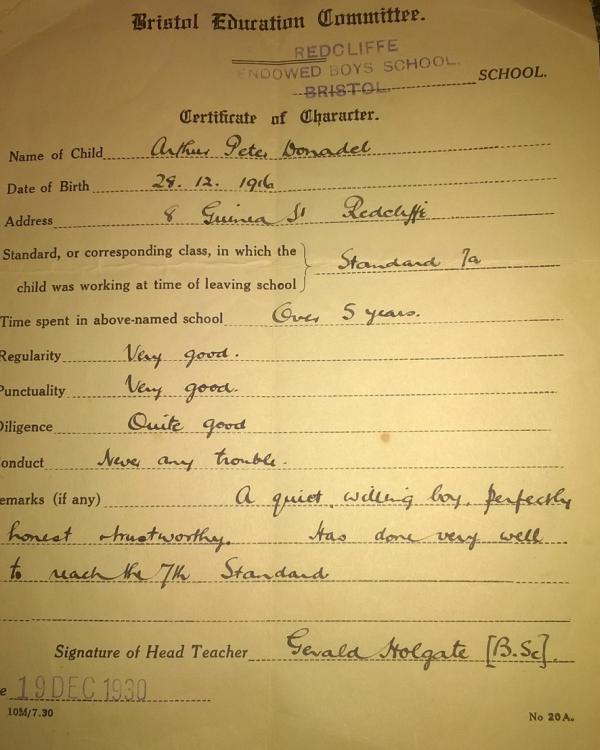 Bristol Education Committee.
REDCLIFFE
ENDOWED BOYS SCHOOL.
BRISTOL. SCHOOL.
Certificate of Character.
Name of Child Arthur Peter Donadel
Date of Birth 28. 12. 1916
Address 8 Guinea St Redcliffe
Standard, or corresponding class, in which the
child was working at time of leaving school } Standard 7a
Time spent in above-named school Over 5 years.
Regularity Very good.
Punctuality Very good.
Diligence Quite good
onduct Never any trouble.
emarks (if any) A quiet, willing boy, perfectly
honest & trustworthy. Has done very well
to reach the 7th Standard
Signature of Head Teacher Gerald Holgate [B.Sc].
e 19 DEC 1930
10M/7.30 No 20A.